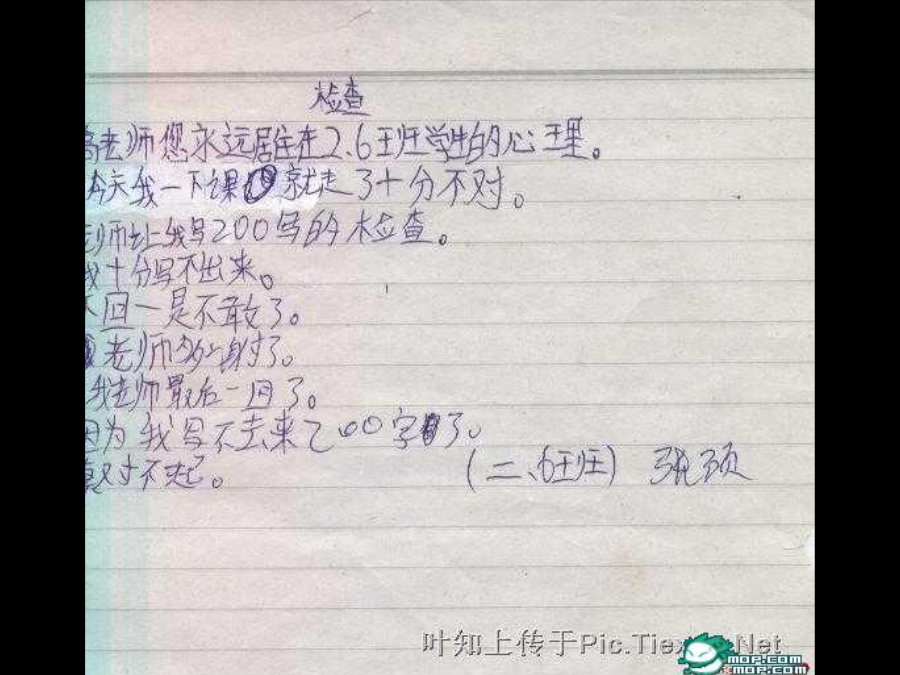 检查
高老师您永远居住在2、6班学生的心里。
今天我一下课就走了十分不对。
老师让我写200写的检查。
我十分写不出来。
下回一是不敢了。
老师
老师最后一回了。
因为我写不去来200字了。
真对不起。
(二、6班) 张颈
叶知上传于Pic.Tiex .Net
mop.com
mop.com